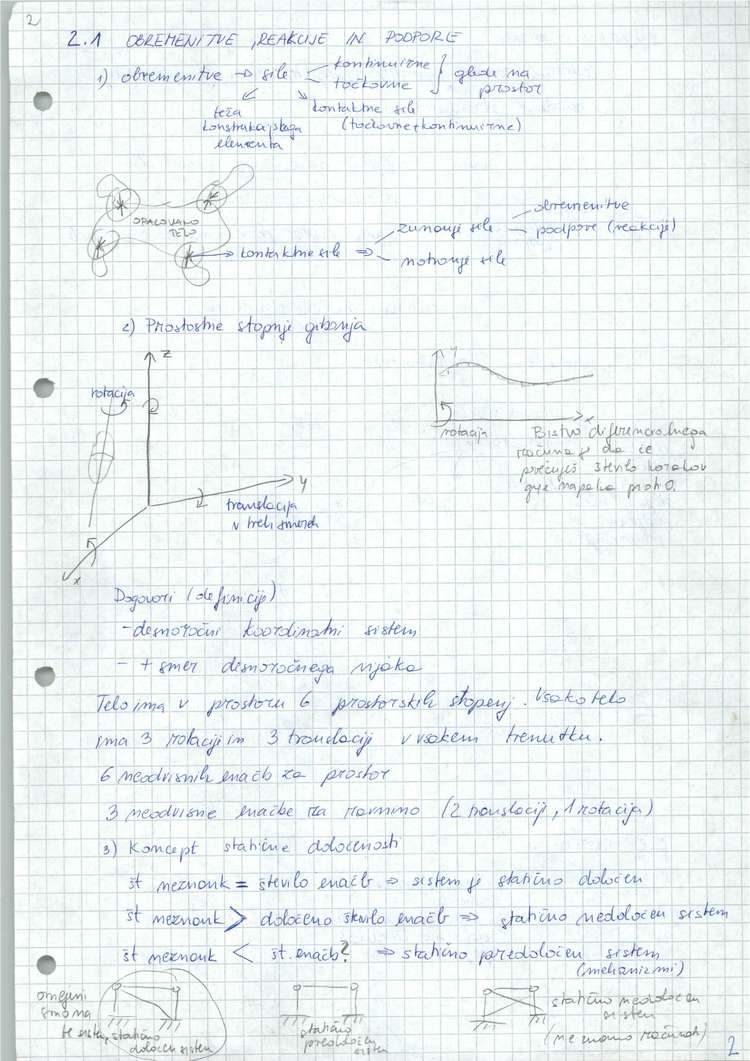 2
2.1 OBREMENITVE, REAKCIJE IN PODPORE
1) obremenitve → sile
kontinuirne
točkovne
glede na prostor
teža konstrukcijskega elementa
kontaktne sile
(točkovne + kontinuirne)
OPAZOVANO
TELO
kontaktne sile ⇒
zunanje sile
obremenitve
podpore (reakcije)
notranje sile
2) Prostostne stopnje gibanja
z
rotacija
y
translacija
v treh smereh
x
y
x
rotacija
Bistvo diferencialnega
računa je da če
povečuješ število korakov
gre napaka proti 0.
Dogovori (definicije)
- desnoročni koordinatni sistem
- + smer desnoročnega vijaka
Telo ima v prostoru 6 prostorskih stopenj. Vsako telo
ima 3 rotacije in 3 translacije v vsakem trenutku.
6 neodvisnih enačb za prostor
3 neodvisne enačbe za ravnino (2 translaciji, 1 rotacija)
3) Koncept statične določenosti
št neznank = število enačb ⇒ sistem je statično določen
št neznank > določeno število enačb ⇒ statično nedoločen sistem
št neznank < št. enačb? ⇒ statično predoločen sistem
(mehanizmi)
omejeni
smo na
te sisteme
statično
določen sistem
statično
predoločen
sistem
statično nedoločen
sistem
(ne znamo računati)
2